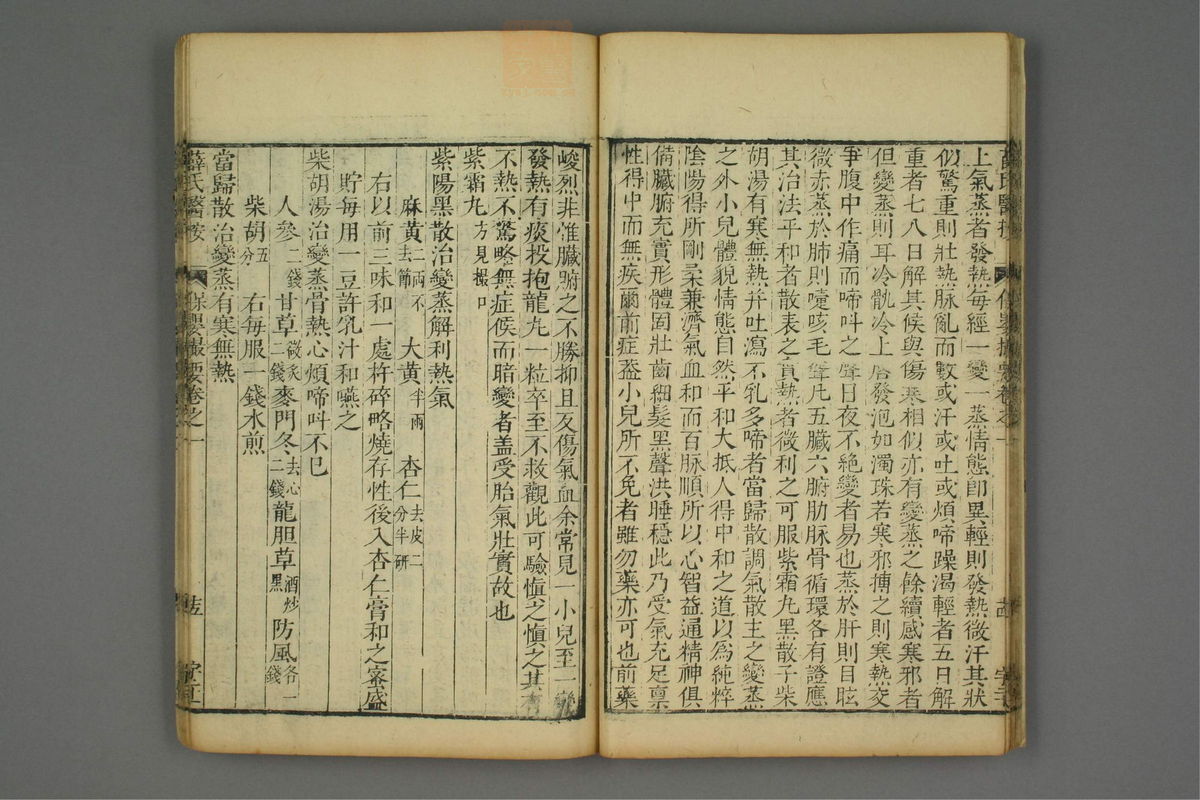 上氣蒸者發熱每經一變一蒸情態卽異輕則發熱微汗其狀
似驚重則壯熱脉亂而數或汗或吐或煩啼躁渴輕者五日解
重者七八日解其候與傷寒相似亦有變蒸之餘續感寒邪者
但變蒸則耳冷骩冷上唇發泡如濁珠若寒邪搏之則寒熱交
爭腹中作痛而啼呌之聲日夜不絶變者易也蒸於肝則目眩
微赤蒸於肺則嚏咳毛聳凡五臟六腑肋脉骨循環各有證應
其治法平和者散表之實熱者微利之可服紫霜丸黑散子柴
胡湯有寒無熱并吐瀉不乳多啼者當歸散調氣散主之變蒸
之外小兒體貌情態自然平和大抵人得中和之道以爲純粹
陰陽得所剛柔兼濟氣血和而百脉順所以心智益通精神俱
備臟腑充實形體固壯齒細髮黑聲洪睡穩此乃受氣充足禀
性得中而無疾爾前症蓋小兒所不免者雖勿藥亦可也前藥
峻烈非惟臟腑之不勝抑且反傷氣血余常見一小兒至一變
發熱有痰投抱龍丸一粒卒至不救觀此可驗愼之愼之其有
不熱不驚略無症候而暗變者盖受胎氣壯實故也
紫霜丸方見撮口
紫陽黑散治變蒸解利熱氣
麻黄二兩不去節 大黄半兩 杏仁去皮二分半研
右以前三味和一處杵碎略燒存性後入杏仁膏和之蜜盛
貯每用一豆許乳汁和嚥之
柴胡湯治變蒸骨熱心煩啼呌不已
人參二錢 甘草微炙二錢 麥門冬去心二錢 龍胆草酒炒黑 防風各一錢
柴胡五分 右每服一錢水煎
當歸散治變蒸有寒無熱
薛氏醫按 保嬰撮要卷之一